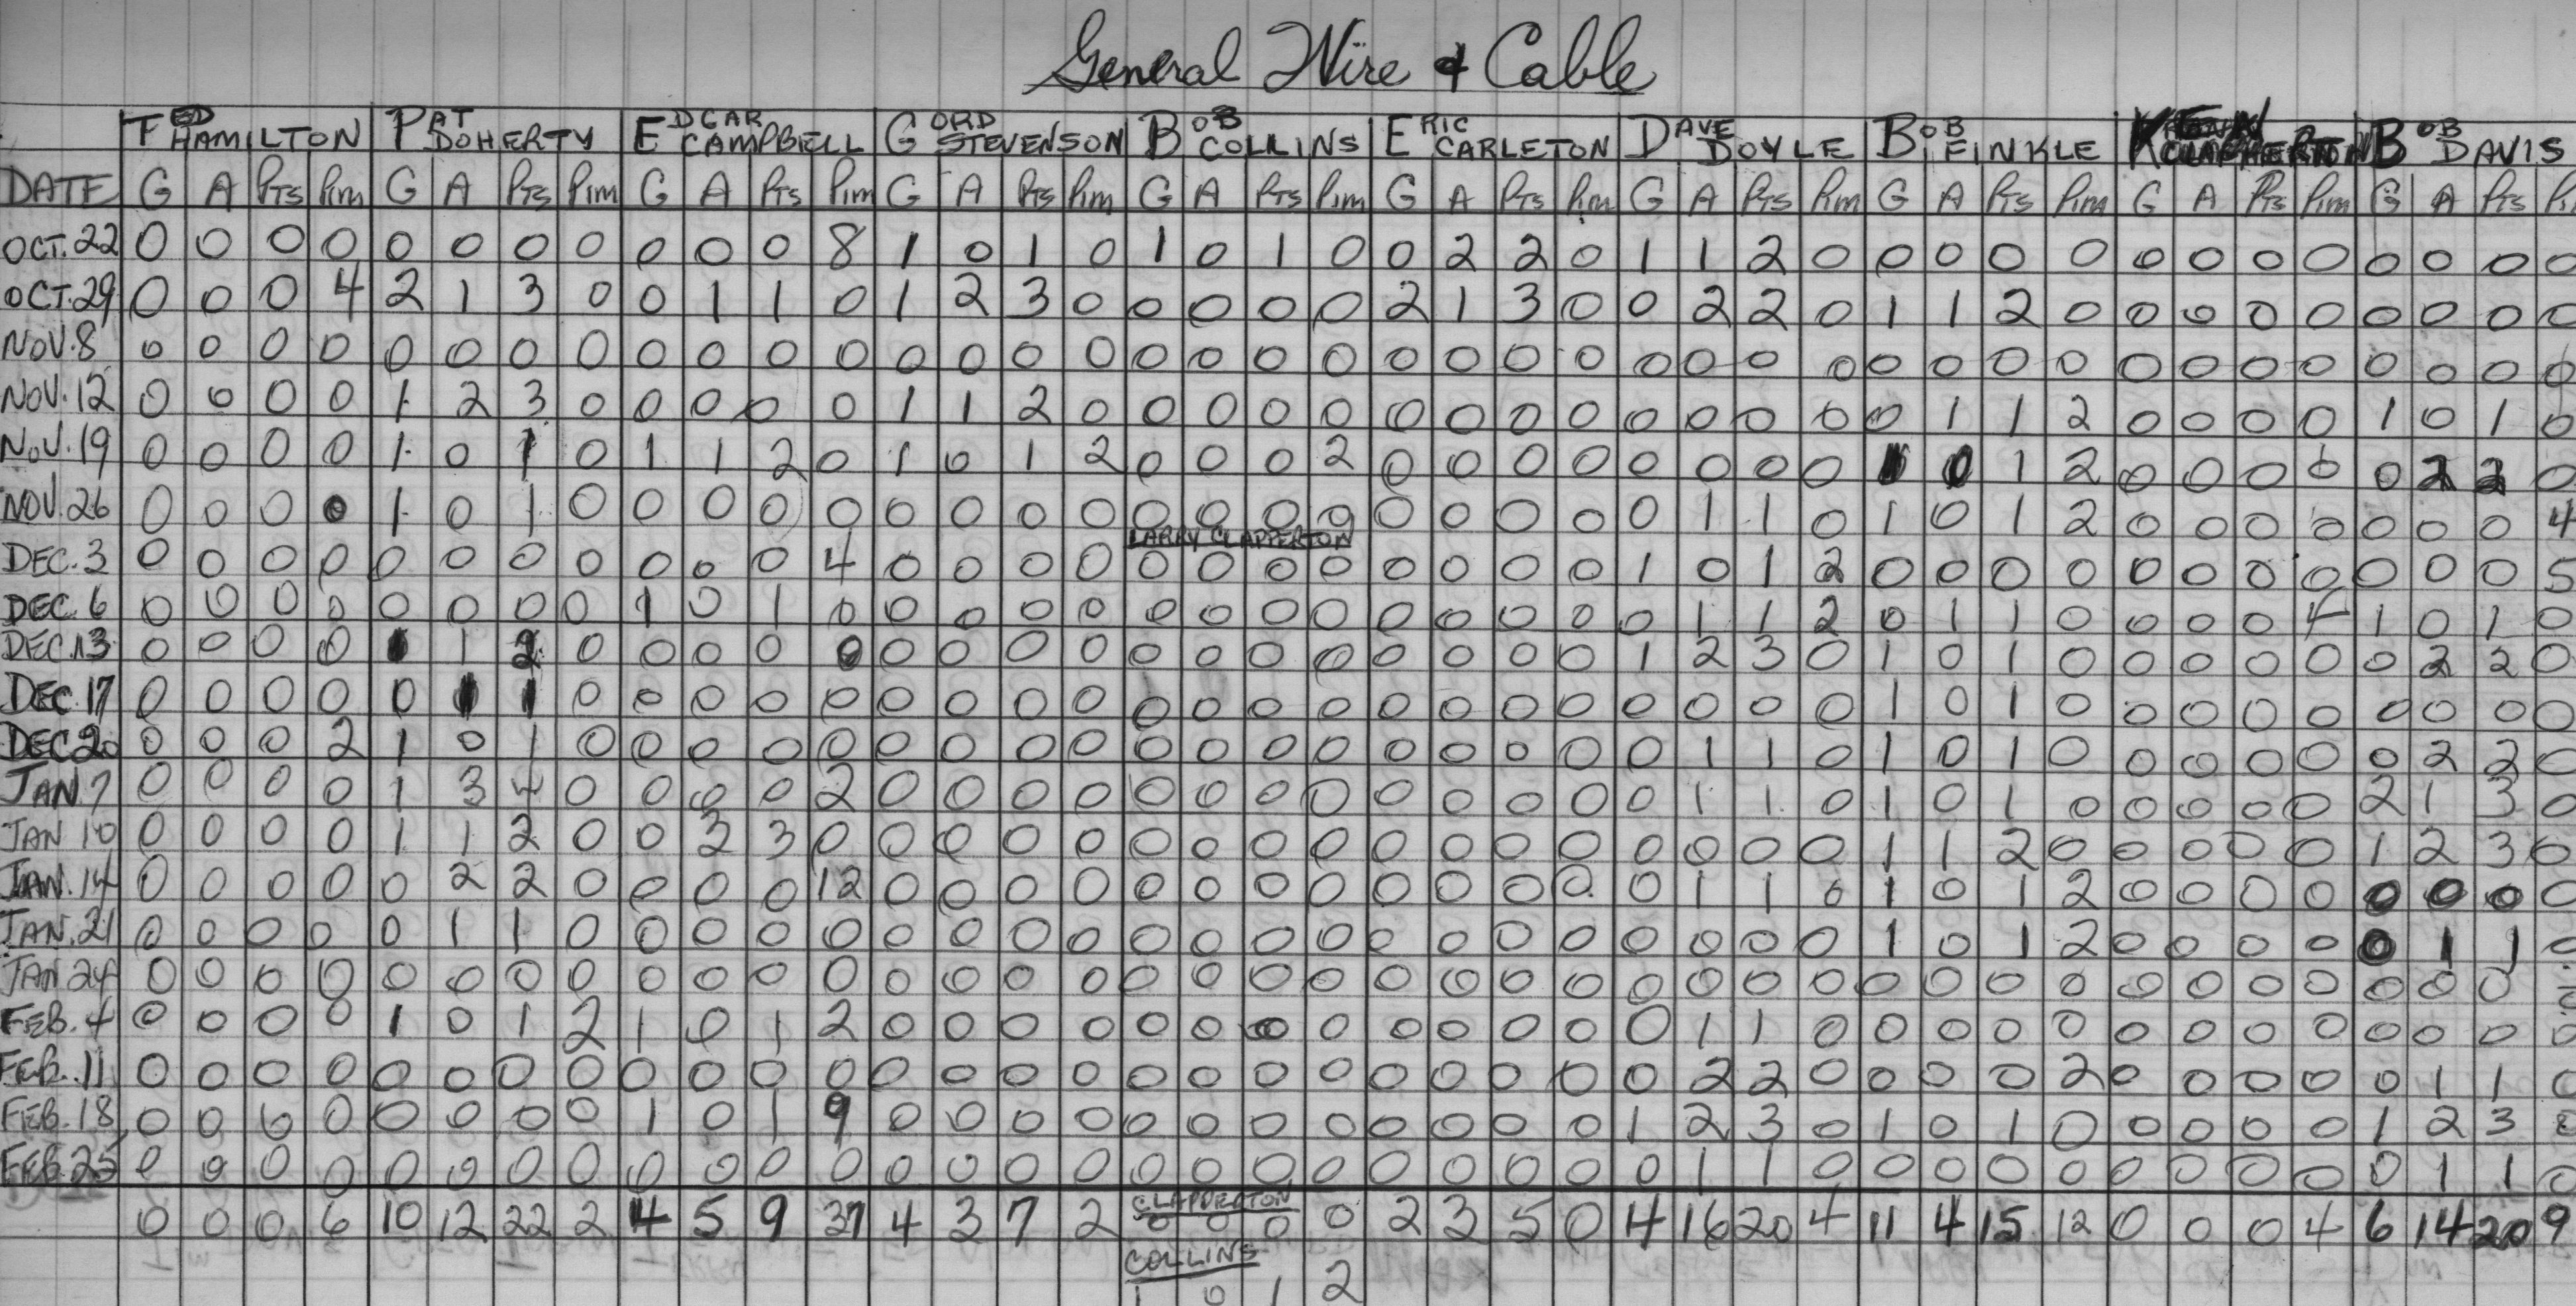 General Wire & Cable
TED HAMILTON PAT DOHERTY EDGAR CAMPBELL GORD STEVENSON BOB COLLINS ERIC CARLETON DAVE DOYLE BOB FINKLE KEN BOB DAVIS
DATE G A PTS Pim G A PTS Pim G A PTS Pim G A PTS Pim G A PTS Pim G A PTS Pim G A PTS Pim G A PTS Pim G A PTS Pim G A PTS Pi
OCT. 22 0 0 0 0 0 0 0 0 0 0 0 8 1 0 1 0 1 0 1 0 0 2 2 0 1 1 2 0 0 0 0 0 0 0 0 0 0 0 0 0
OCT. 29 0 0 0 4 2 1 3 0 0 1 1 0 1 2 3 0 0 0 0 0 2 1 3 0 0 2 2 0 1 1 2 0 0 0 0 0 0 0 0 0
NOV. 8 0 0 0 0 0 0 0 0 0 0 0 0 0 0 0 0 0 0 0 0 0 0 0 0 0 0 0 0 0 0 0 0 0 0 0 0 0 0 0 0
NOV. 12 0 0 0 0 1 2 3 0 0 0 0 0 1 1 2 0 0 0 0 0 0 0 0 0 0 0 0 0 0 1 1 2 0 0 0 0 1 0 1 0
NOV. 19 0 0 0 0 1 0 1 0 1 1 2 0 1 0 1 2 0 0 0 2 0 0 0 0 0 0 0 0 1 0 1 2 0 0 0 0 0 2 2 0
NOV. 26 0 0 0 0 1 0 1 0 0 0 0 0 0 0 0 0 0 0 0 0 0 0 0 0 0 1 1 0 1 0 1 2 0 0 0 0 0 0 0 4
LARRY CLAPPERTON
DEC. 3 0 0 0 0 0 0 0 0 0 0 0 4 0 0 0 0 0 0 0 0 0 0 0 0 1 0 1 2 0 0 0 0 0 0 0 0 0 0 0 5
DEC. 6 0 0 0 0 0 0 0 0 1 0 1 0 0 0 0 0 0 0 0 0 0 0 0 0 0 1 1 2 0 1 1 0 0 0 0 4 1 0 1 0
DEC. 13 0 0 0 0 1 1 2 0 0 0 0 0 0 0 0 0 0 0 0 0 0 0 0 0 1 2 3 0 1 0 1 0 0 0 0 0 0 2 2 0
DEC. 17 0 0 0 0 0 1 1 0 0 0 0 0 0 0 0 0 0 0 0 0 0 0 0 0 0 0 0 0 1 0 1 0 0 0 0 0 0 0 0 0
DEC 20 0 0 0 2 1 0 1 0 0 0 0 0 0 0 0 0 0 0 0 0 0 0 0 0 0 1 1 0 1 0 1 0 0 0 0 0 0 2 2 0
JAN. 7 0 0 0 0 1 3 4 0 0 0 0 2 0 0 0 0 0 0 0 0 0 0 0 0 0 1 1 0 1 0 1 0 0 0 0 0 2 1 3 0
JAN 10 0 0 0 0 1 1 2 0 0 3 3 0 0 0 0 0 0 0 0 0 0 0 0 0 0 0 0 0 1 1 2 0 0 0 0 0 1 2 3 0
JAN. 14 0 0 0 0 0 2 2 0 0 0 0 12 0 0 0 0 0 0 0 0 0 0 0 0 0 1 1 0 1 0 1 2 0 0 0 0 0 0 0 0
JAN. 21 0 0 0 0 0 1 1 0 0 0 0 0 0 0 0 0 0 0 0 0 0 0 0 0 0 0 0 0 1 0 1 2 0 0 0 0 0 1 1 0
JAN 24 0 0 0 0 0 0 0 0 0 0 0 0 0 0 0 0 0 0 0 0 0 0 0 0 0 0 0 0 0 0 0 0 0 0 0 0 0 0 0
FEB. 4 0 0 0 0 1 0 1 2 1 0 1 2 0 0 0 0 0 0 0 0 0 0 0 0 0 1 1 0 0 0 0 0 0 0 0 0 0 0 0 0
FEB. 11 0 0 0 0 0 0 0 0 0 0 0 0 0 0 0 0 0 0 0 0 0 0 0 0 0 2 2 0 0 0 0 2 0 0 0 0 0 1 1 0
FEB. 18 0 0 0 0 0 0 0 0 1 0 1 9 0 0 0 0 0 0 0 0 0 0 0 0 1 2 3 0 1 0 1 0 0 0 0 0 1 2 3
FEB. 25 0 0 0 0 0 0 0 0 0 0 0 0 0 0 0 0 0 0 0 0 0 0 0 0 0 1 1 0 0 0 0 0 0 0 0 0 0 1 1 0
CLAPPERTON
0 0 0 6 10 12 22 2 4 5 9 37 4 3 7 2 0 0 0 0 2 3 5 0 4 16 20 4 11 4 15 12 0 0 0 4 6 14 20 9
COLLINS
1 0 1 2